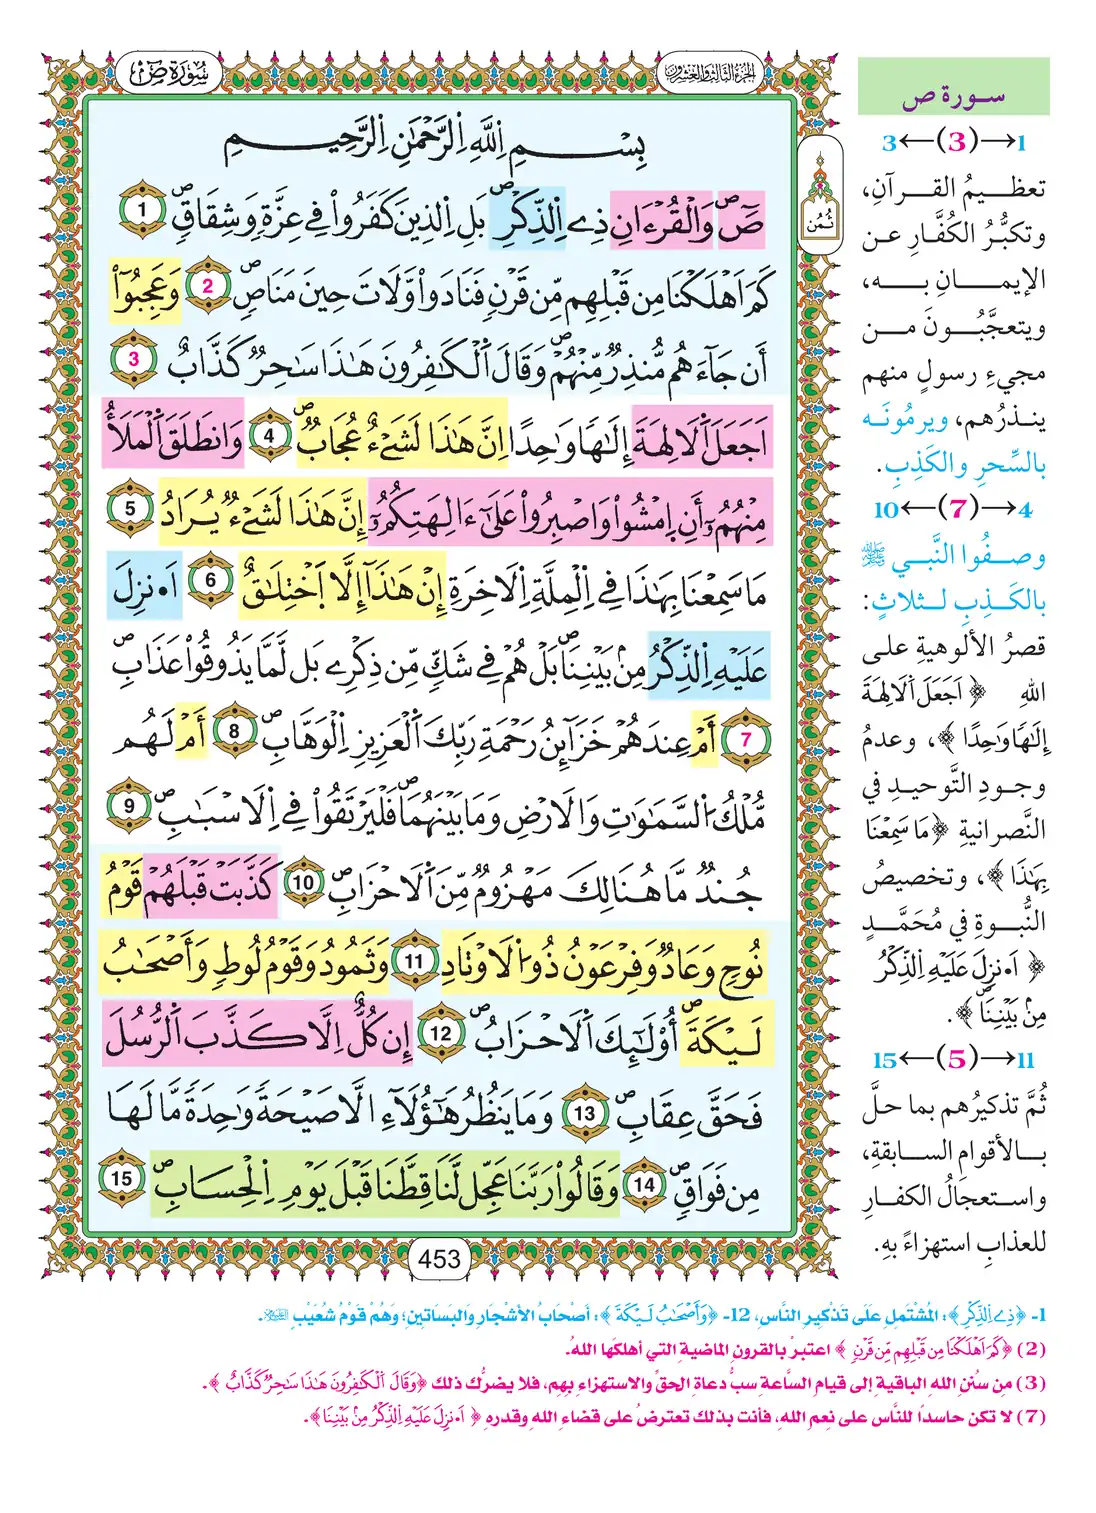 سُورَةُ صٓ
الجزء الثالث والعشرون
بِسْمِ اِ۬للَّهِ اِ۬لرَّحْمَٰنِ اِ۬لرَّحِيمِ
صَٓ وَالْقُرْءَانِ ذِے اِ۬لذِّكْرِ بَلِ اِ۬لذِينَ كَفَرُواْ فِے عِزَّةٖ وَشِقَاقٖ 1
كَمَ اَهْلَكْنَا مِن قَبْلِهِم مِّن قَرْنٖ فَنَادَواْ وَّلَاتَ حِينَ مَنَاصٖ 2 وَعَجِبُوٓاْ
أَن جَآءَهُم مُّنذِرٞ مِّنْهُمْ وَقَالَ اَ۬لْكَٰفِرُونَ هَٰذَا سَٰحِرٞ كَذَّابٌ 3
اَجَعَلَ اَ۬لَالِهَةَ إِلَٰهاٗ وَٰحِداً اِنَّ هَٰذَا لَشَےْءٌ عُجَابٞ 4 وَانطَلَقَ اَ۬لْمَلَأُ
مِنْهُمُۥٓ أَنِ اِ۪مْشُواْ وَاصْبِرُواْ عَلَىٰٓ ءَالِهَتِكُمُۥٓ إِنَّ هَٰذَا لَشَےْءٞ يُرَادُ 5
مَا سَمِعْنَا بِهَٰذَا فِے اِ۬لْمِلَّةِ اِ۬لَاخِرَةِ إِنْ هَٰذَآ إِلَّا اَ۪خْتِلَٰقٌ 6 اَ•نزِلَ
عَلَيْهِ اِ۬لذِّكْرُ مِنۢ بَيْنِنَا بَلْ هُمْ فِے شَكّٖ مِّن ذِكْرِے بَل لَّمَّا يَذُوقُواْ عَذَابِ
7 أَمْ عِندَهُمْ خَزَآئِنُ رَحْمَةِ رَبِّكَ اَ۬لْعَزِيزِ اِ۬لْوَهَّابِ 8 أَمْ لَهُم
مُّلْكُ اُ۬لسَّمَٰوَٰتِ وَالَارْضِ وَمَا بَيْنَهُمَا فَلْيَرْتَقُواْ فِے اِ۬لَاسْبَٰبِ 9
جُندٞ مَّا هُنَالِكَ مَهْزُومٞ مِّنَ اَ۬لَاحْزَابِ 10 كَذَّبَتْ قَبْلَهُمْ قَوْمُ
نُوحٖ وَعَادٞ وَفِرْعَوْنُ ذُو اُ۬لَاوْتَادِ 11 وَثَمُودُ وَقَوْمُ لُوطٖ وَأَصْحَٰبُ
لَيْكَةَ أُوْلَٰٓئِكَ اَ۬لَاحْزَابُ 12 إِن كُلٌّ اِلَّا كَذَّبَ اَ۬لرُّسُلَ
فَحَقَّ عِقَابِ 13 وَمَا يَنظُرُ هَٰٓؤُلَآءِ اِلَّا صَيْحَةٗ وَٰحِدَةٗ مَّا لَهَا
مِن فَوَاقٖ 14 وَقَالُواْ رَبَّنَا عَجِّل لَّنَا قِطَّنَا قَبْلَ يَوْمِ اِ۬لْحِسَابِ 15
453
ثُمُن
سورة ص
1→(3)←3
تعظيمُ القرآنِ،
وتكبُّرُ الكُفَّارِ عن
الإيمانِ به،
ويتعجَّبُونَ من
مجيءِ رسولٍ منهم
ينذرُهم، ويرمُونَه
بالسِّحرِ والكَذِبِ.
4→(7)←10
وصفُوا النَّبي ﷺ
بالكَذِبِ لثلاثٍ:
قصرُ الألوهيةِ على
اللهِ ﴿اَجَعَلَ اَ۬لَالِهَةَ
إِلَٰهاٗ وَٰحِداً﴾، وعدمُ
وجودِ التَّوحيدِ في
النَّصرانيةِ ﴿مَا سَمِعْنَا
بِهَٰذَا﴾، وتخصيصُ
النُّبوةِ في مُحَمَّدٍ
﴿اَ•نزِلَ عَلَيْهِ اِ۬لذِّكْرُ
مِنۢ بَيْنِنَا﴾.
11→(5)←15
ثُمَّ تذكيرُهم بما حلَّ
بالأقوامِ السابقةِ،
واستعجالُ الكفارِ
للعذابِ استهزاءً بهِ.
1- ﴿ذِے اِ۬لذِّكْرِ﴾: المُشْتَمِلِ عَلَى تَذْكِيرِ النَّاسِ، 12- ﴿وَأَصْحَٰبُ لَيْكَةَ﴾: أصْحَابُ الأشْجَارِ والبَسَاتِينِ؛ وهُمْ قَوْمُ شُعَيْبٍ عليه السلام.
(2) ﴿كَمَ اَهْلَكْنَا مِن قَبْلِهِم مِّن قَرْنٖ﴾ اعتبرْ بالقرونِ الماضيةِ التي أهلكَها اللهُ.
(3) من سُنَنِ اللهِ الباقيةِ إلى قيامِ السَّاعةِ سبُّ دعاةِ الحقِّ والاستهزاءِ بهم، فلا يضرُّك ذلك ﴿وَقَالَ اَ۬لْكَٰفِرُونَ هَٰذَا سَٰحِرٞ كَذَّابٌ﴾.
(7) لا تكن حاسدًا للنَّاس على نعمِ اللهِ، فأنت بذلك تعترضُ على قضاءِ اللهِ وقدرِه ﴿اَ•نزِلَ عَلَيْهِ اِ۬لذِّكْرُ مِنۢ بَيْنِنَا﴾.